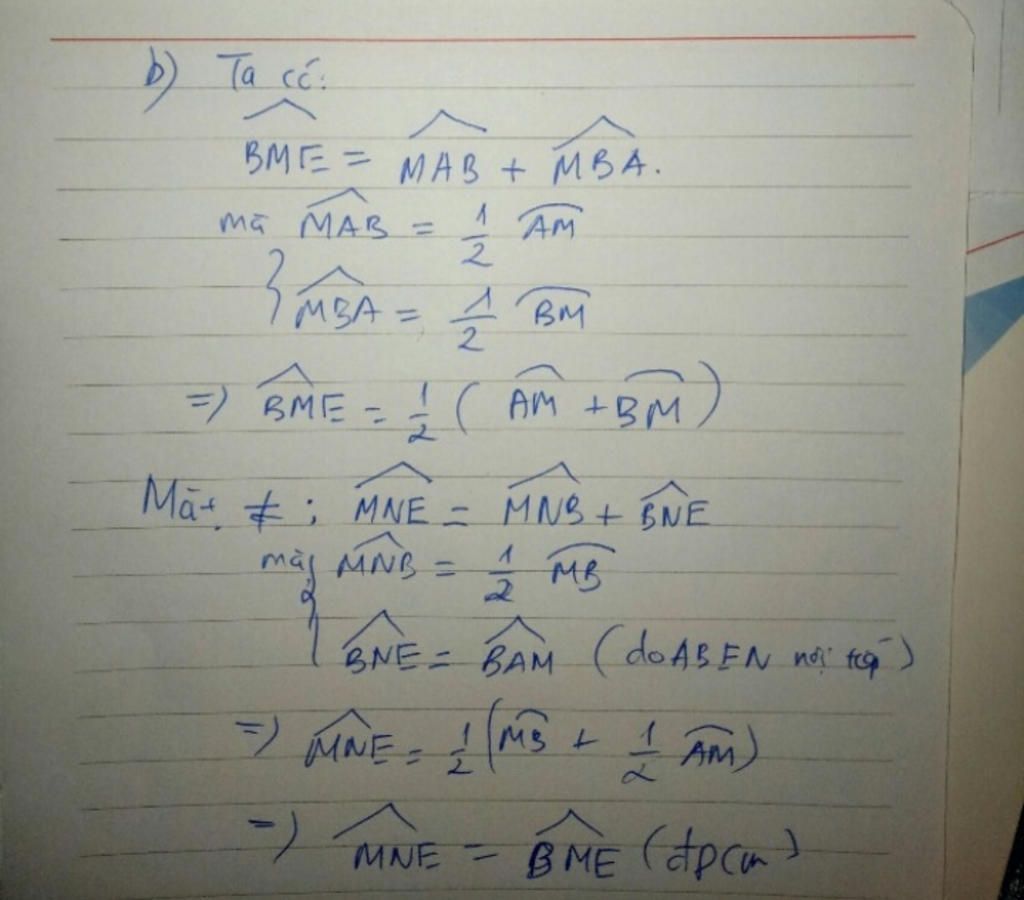 b) Ta có:
\widehat{BME} = \widehat{MAB} + \widehat{MBA}.
mà \widehat{MAB} = \frac{1}{2} \overset{\frown}{AM}
\widehat{MBA} = \frac{1}{2} \overset{\frown}{BM}
=> \widehat{BME} = \frac{1}{2} ( \overset{\frown}{AM} + \overset{\frown}{BM} )
Mặt ≠ ; \widehat{MNE} = \widehat{MNB} + \widehat{BNE}
mà { \widehat{MNB} = \frac{1}{2} \overset{\frown}{MB}
\widehat{BNE} = \widehat{BAM} (do ABEN nội tiếp)
=> \widehat{MNE} = \frac{1}{2} ( \overset{\frown}{MB} + \frac{1}{2} \overset{\frown}{AM} )
=> \widehat{MNE} = \widehat{BME} (đpcm)